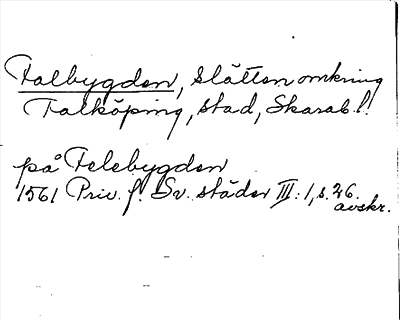 Falbygden, slätten omkring
Falköping, stad, Skarab. l.
på Felebygden
1561 Priv. f. Sv. städer III: 1, s. 26.
avskr.